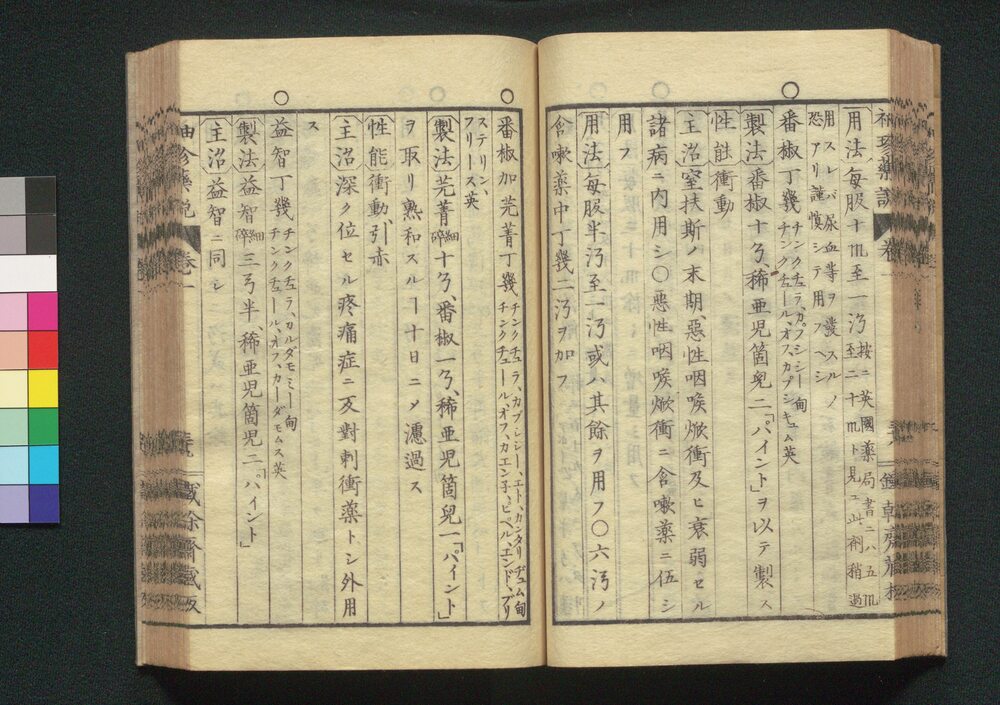 袖珍藥説 卷一
用法 每服十𝔪至一㳓 按ニ英國藥局書ニハ五𝔪
至二十𝔪ト見ユ此劑稍過
用スレバ尿血等ヲ發スルノ
恐アリ謹愼シテ用フヘシ
○番椒丁幾 チンクチュラ、カプシシー 甸
チンクチュール、オフ、カプシキュム 英
製法 番椒十ゟ、稀亜児箇兒二「パイント」ヲ以テ製ス
性能 衝動
主治 窒扶斯ノ末期、惡性咽喉焮衝及ヒ衰弱セル
諸病ニ内用シ○惡性咽喉焮衝ニ含嗽藥ニ伍シ
用フ
用法 每服半㳓至一㳓或ハ其餘ヲ用フ○六㳓ノ
含嗽藥中丁幾二㳓ヲ加フ
○番椒加芫菁丁幾 チンクチュラ、カプシシー、エト、カンタリヂュム 甸
チンクチュール、オフ、カエン子、ペペル、エンド、ブリ
ステリン、
フリース 英
製法 芫菁 細碎 十ゟ、番椒一ゟ、稀亜児箇兒一「パイント」
ヲ取リ熟和スルヿ十日ニ〆濾過ス
性能 衝動、引赤
主治 深ク位セル疼痛症ニ反對刺衝藥トシ外用
ス
○益智丁幾 チンクチュラ、カルダモミー 甸
チンクチュール、オフ、カーダモムス 英
製法 益智 細碎 三ゟ半、稀亜児箇児二「パイント」
主治 益智ニ同シ
袖珍藥説 卷一